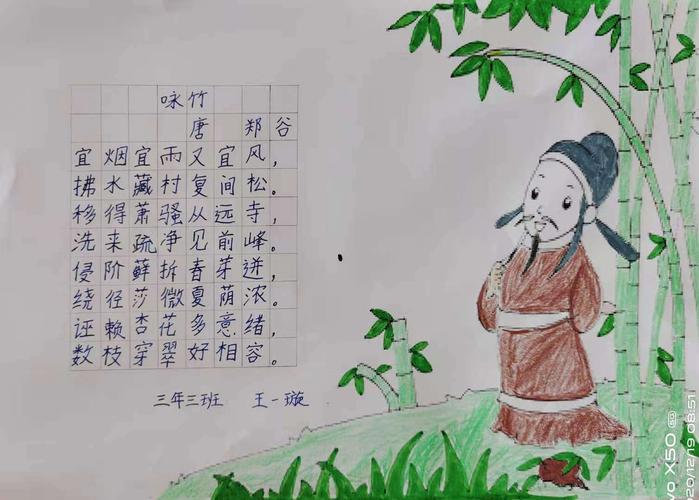 咏竹
唐 郑谷
宜烟宜雨又宜风，
拂水藏村复间松。
移得萧骚从远寺，
洗来疏净见前峰。
侵阶藓拆春芽迸，
绕径莎微夏荫浓。
诬赖杏花多意绪，
数枝穿翠好相容。
三年三班 王一璇
vo X50 5G
20/12/19 08:51